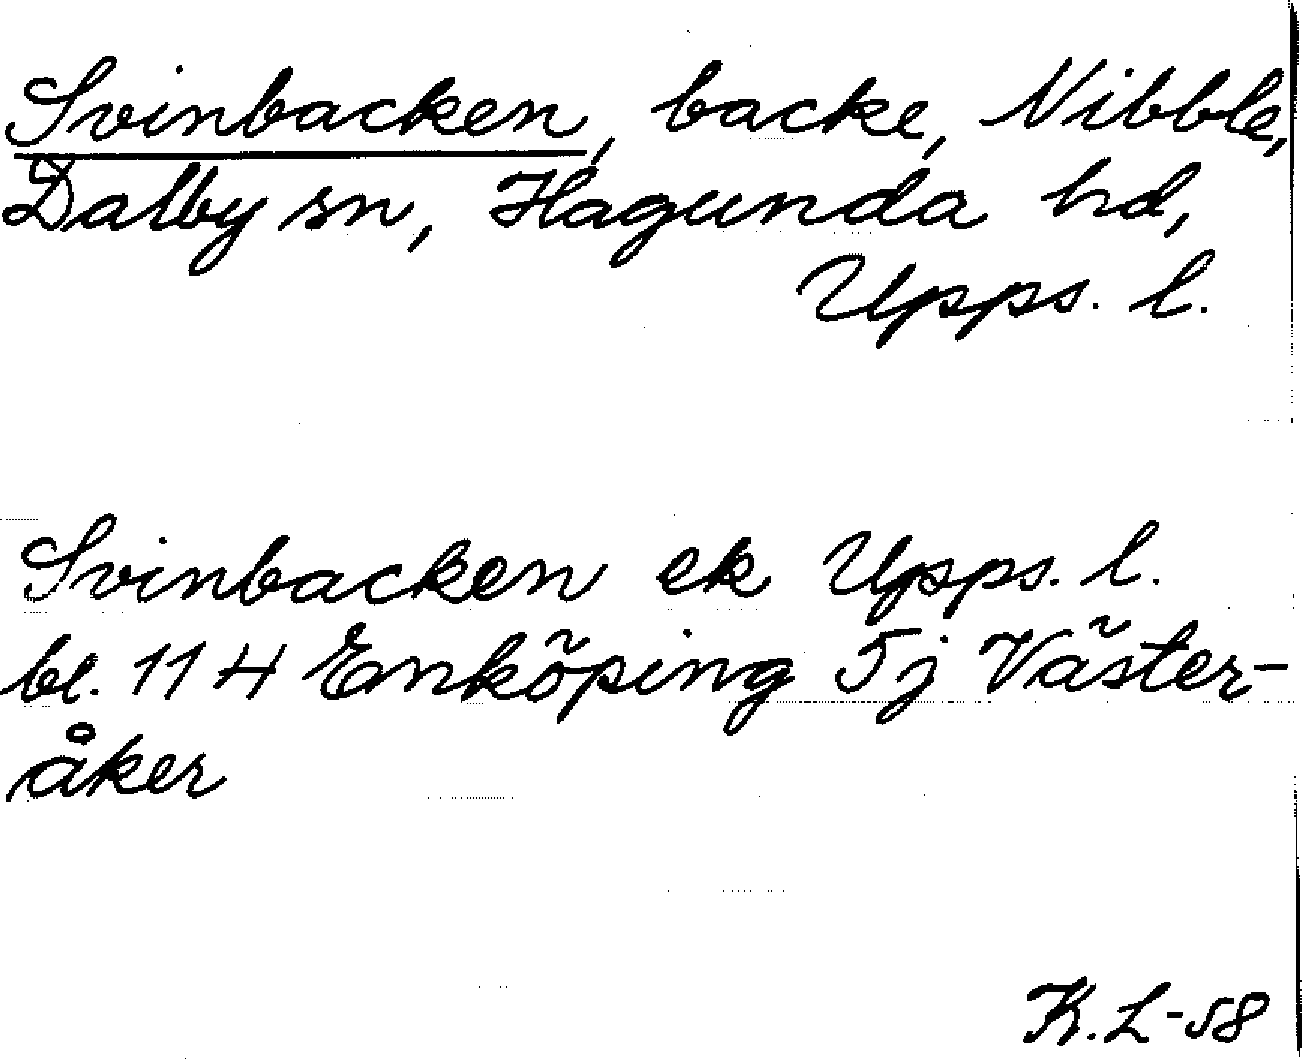 Svinbacken, backe, Nibble,
Dalby sn, Hagunda hd,
Upps. l.
Svinbacken ek Upps. l.
bl. 11 H Enköping 5j Väster-
åker
K. L-58